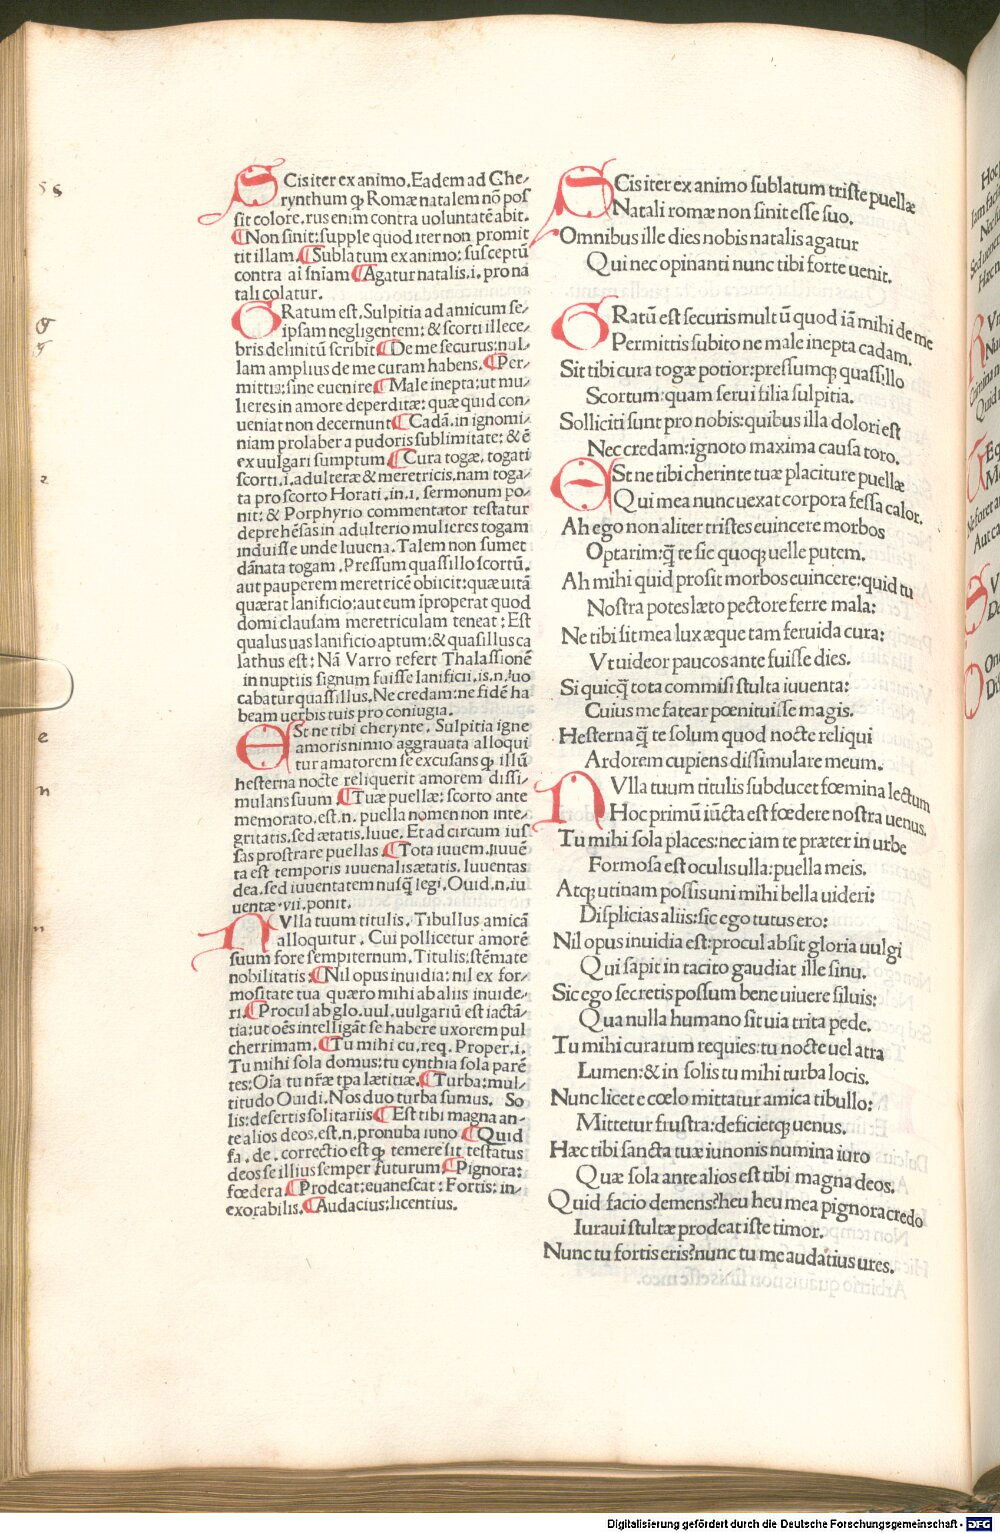 Scis iter ex animo. Eadem ad Che⸗
rynthum ꝙ Romæ natalem nō pos
sit colore. rus enim contra uoluntatē abit.
¶Non sinit: supple quod iter non promit
tit illam. ¶Sublatum ex animo: susceptū
contra ai sniam ¶Agatur natalis .i. pro na
tali colatur.
GRatum est. Sulpitia ad amicum se⸗
ipsam negligentem: & scorti illece⸗
bris delinitū scribit ¶De me securus: nul⸗
lam amplius de me curam habens. ¶Per⸗
mittis: sine euenire ¶Male inepta: ut mu⸗
lieres in amore deperditæ: quæ quid con⸗
ueniat non decernunt ¶Cadā. in ignomi⸗
niam prolabera pudoris sublimitate: & ē
ex uulgari sumptum ¶Cura togæ. togati
scorti .i. adulteræ & meretricis. nam toga⸗
ta pro scorto Horati. in .i. sermonum po⸗
nit: & Porphyrio commentator testatur
deprehēsas in adulterio mulieres togam
induisse unde Iuuena. Talem non sumet
dānata togam. Pressum quasillo scortū.
aut pauperem meretricē obiicit: quæ uitā
quærat lanificio: aut eum īproperat quod
domi clausam meretriculam teneat: Est
qualus uas lanificio aptum: & quasillus ca
lathus est: Nā Varro refert Thalassionē
in nuptiis signum fuisse lanificii. is. n. uo
cabatur quassillus. Ne credam: ne fidē ha
beam uerbis tuis pro coniugia.
ESt ne tibi cherynte. Sulpitia igne
amoris nimio aggrauata alloqui
tur amatorem se excusans ꝙ illū
hesterna nocte reliquerit amorem dissi⸗
mulans suum. ¶Tuæ puellæ: scorto ante
memorato. est. n. puella nomen non inte⸗
gritatis. sed ætatis. Iuue. Et ad circum ius⸗
sas prostrare puellas. ¶Tota iuuem. iuuē
ta est temporis iuuenalis ætatis. Iuuentas
dea. sed iuuentatem nusq̄ legi. Ouid. n. iu
uentæ .vii. ponit.
NVlla tuum titulis. Tibullus amicā
alloquitur. Cui pollicetur amorē
suum fore sempiternum. Titulis: stēmate
nobilitatis: ¶Nil opus inuidia: nil ex for⸗
mositate tua quæro mihi ab aliis inuide⸗
ri. ¶Procul ab glo. uul. uulgariū est iactā⸗
tia: ut oēs intelligāt se habere uxorem pul
cherrimam. ¶Tu mihi cu. req. Proper. i.
Tu mihi sola domus: tu cynthia sola parē
tes: Oīa tu nr̄æ tpa lætitiæ. ¶Turba: mul⸗
titudo Ouidi. Nos duo turba sumus. So
lis: desertis solitariis ¶Est tibi magna an⸗
te alios deos. est. n. pronuba iuno ¶Quid
fa. de. correctio est ꝙ temere sit testatus
deos se illius semper futurum. ¶Pignora:
fœdera ¶Prodeat: euanescat: Fortis: in⸗
exorabilis. ¶Audacius: licentius.
SCis iter ex animo sublatum triste puellæ
Natali romæ non sinit esse suo.
Omnibus ille dies nobis natalis agatur
Qui nec opinanti nunc tibi forte uenit.
GRatū est securis multū quod iā mihi de me
Permittis subito ne male inepta cadam.
Sit tibi cura togæ potior: pressumq; quassillo
Scortum: quam serui filia sulpitia.
Solliciti sunt pro nobis: quibus illa dolori est
Nec credam: ignoto maxima causa toro.
ESt ne tibi cherinte tuæ placiture puellæ
Qui mea nunc uexat corpora fessa calor.
Ah ego non aliter tristes euincere morbos
Optarim: q̄ te sie quoq; uelle putem.
Ah mihi quid prosit morbos euincere: quid tu
Nostra potes læto pectore ferre mala:
Ne tibi sit mea lux æque tam feruida cura:
Vt uideor paucos ante fuisse dies.
Si quicq̄ tota commisi stulta iuuenta:
Cuius me fatear pœnituisse magis.
Hesterna q̄ te solum quod nocte reliqui
Ardorem cupiens dissimulare meum.
NVlla tuum titulis subducet fœmina lectum
Hoc primū iūcta est fœdere nostra uenus.
Tu mihi sola places: nec iam te præter in urbe
Formosa est oculis ulla: puella meis.
Atq; utinam possis uni mihi bella uideri:
Displicias aliis: sic ego tutus ero:
Nil opus inuidia est: procul absit gloria uulgi
Qui sapit in tacito gaudiat ille sinu.
Sic ego secretis possum bene uiuere siluis:
Qua nulla humano sit uia trita pede.
Tu mihi curarum requies: tu nocte uel atra
Lumen: & in solis tu mihi turba locis.
Nunc licet e cœlo mittatur amica tibullo:
Mittetur frustra: deficietq; uenus.
Hæc tibi sancta tuæ iunonis numina iuro
Quæ sola ante alios est tibi magna deos.
Quid facio demens? heu heu mea pignora credo
Iuraui stultæ prodeat iste timor.
Nunc tu fortis eris? nunc tu me audatius ures.
Digitalisierung gefördert durch die Deutsche Forschungsgemeinschaft - DFG